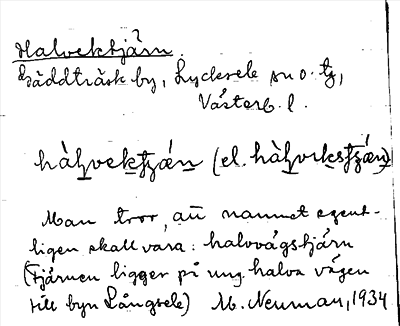 Halvektjärn.
Gäddträsk by, Lycksele sn o. tg,
Västerb. l.
hàl̠vek̠tʒǽn̠ (el. hàl̠vɩk̠stʒǽn̠)
Man tror, att namnet egent-
ligen skall vara: halvvägstjärn
(Tjärnen ligger på ung. halva vägen
till byn Långsele) M. Neuman, 1934